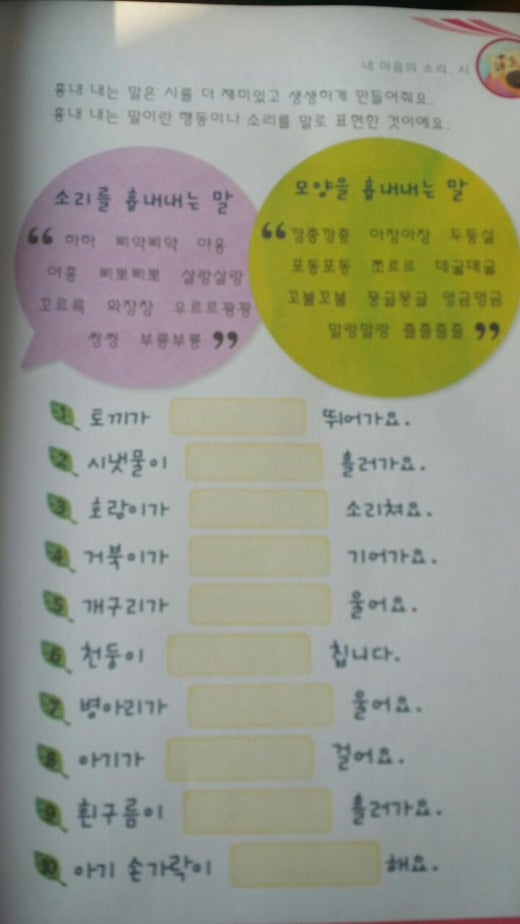 내 마음의 소리, 시
흉내 내는 말은 시를 더 재미있고 생생하게 만들어줘요.
흉내 내는 말이란 행동이나 소리를 말로 표현한 것이에요.
소리를 흉내내는 말
“ 하하 삐약삐약 야옹
어흥 삐뽀삐뽀 살랑살랑
꼬르륵 와장창 우르르쾅쾅
씽씽 부릉부릉 ”
모양을 흉내내는 말
“ 깡충깡충 아장아장 두둥실
포동포동 쪼르르 데굴데굴
꼬불꼬불 뭉글뭉글 엉금엉금
말랑말랑 졸졸졸졸 ”
1 토끼가 뛰어가요.
2 시냇물이 흘러가요.
3 호랑이가 소리쳐요.
4 거북이가 기어가요.
5 개구리가 울어요.
6 천둥이 칩니다.
7 병아리가 울어요.
8 아기가 걸어요.
9 흰구름이 흘러가요.
10 아기 손가락이 해요.